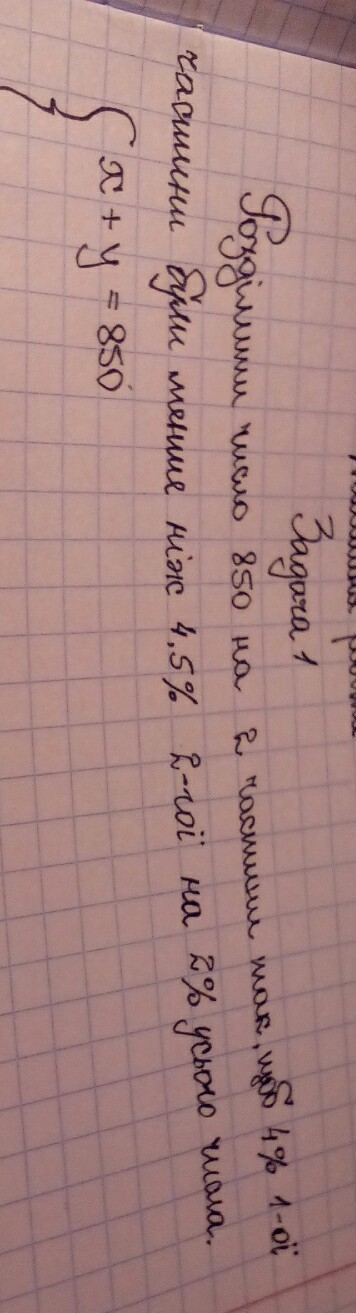 Задача 1
Розділити число 850 на 2 частини так, щоб 4% 1-ої
частини були менше ніж 4,5% 2-гої на 2% усього числа.
{ x + y = 850